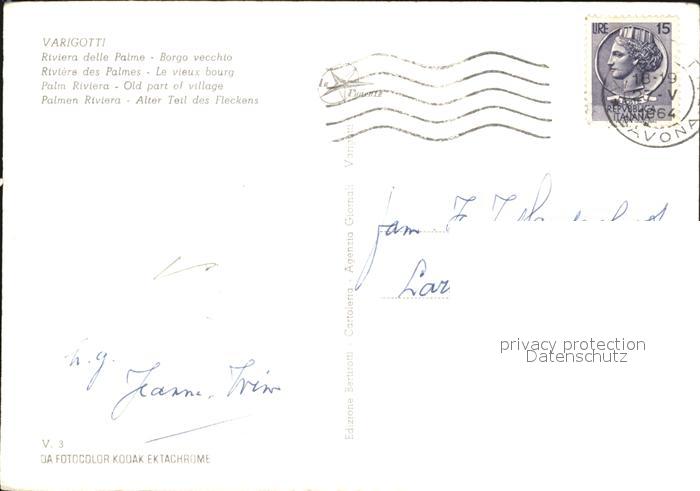 VARIGOTTI
Riviera delle Palme - Borgo vecchio
Rivière des Palmes - Le vieux bourg
Palm Riviera - Old part of village
Palmen Riviera - Alter Teil des Fleckens
LIRE 15
18-19
-V
1964
REPVBBLICA
ITALIANA
SAVONA
Fam.
Lar
h.g.
Jeanne,
privacy protection
Datenschutz
Edizione Bertirotti - Cartoleria - Agenzia Giornali Varigotti
V. 3
DA FOTOCOLOR KODAK EKTACHROME